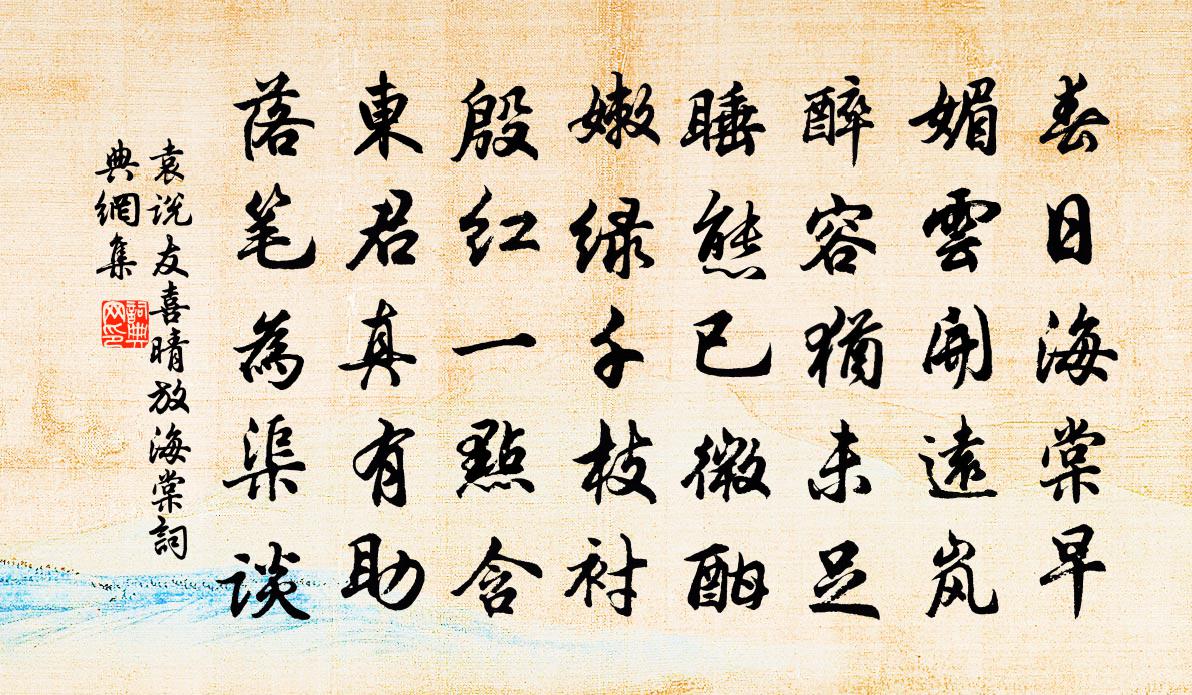 春日海棠早
媚雲開遠岚
醉容猶未足
睡態已微酣
嫩绿千枝衬
殷红一點含
東君真有助
落笔為渠谈
袁说友喜晴放海棠詞
典網集
詞典
网印